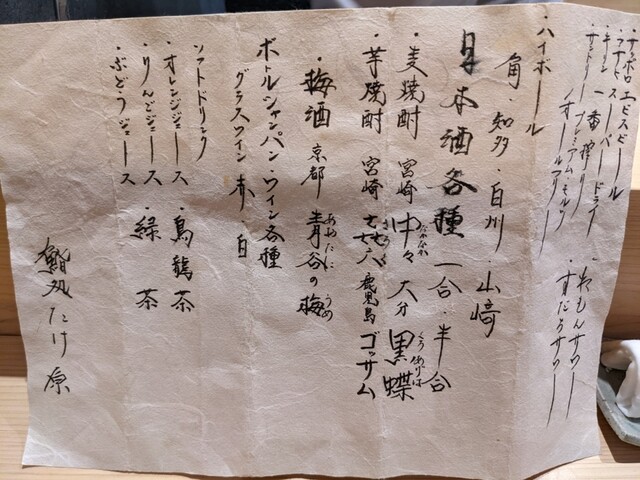 ・サッポロ エビスビール
・アサヒ スーパードライ
・キリン 一番搾り
・サントリー プレミアム・モルツ
〃 オールフリー
・れもんサワー
・すだちサワー
・ハイボール
角・知多・白州・山崎
日本酒各種 一合・半合
・麦焼酎 宮崎 中々 なかなか 大分 黒蝶
・芋焼酎 宮崎 㐂六 きろく 鹿児島 ゴッサム
・梅酒 京都 青谷の梅 あおたに うめ
ボトルシャンパン・ワイン各種
グラスワイン 赤・白
ソフトドリンク
・オレンジジュース ・烏龍茶
・りんごジュース ・緑茶
・ぶどうジュース
鮨処 たけ原